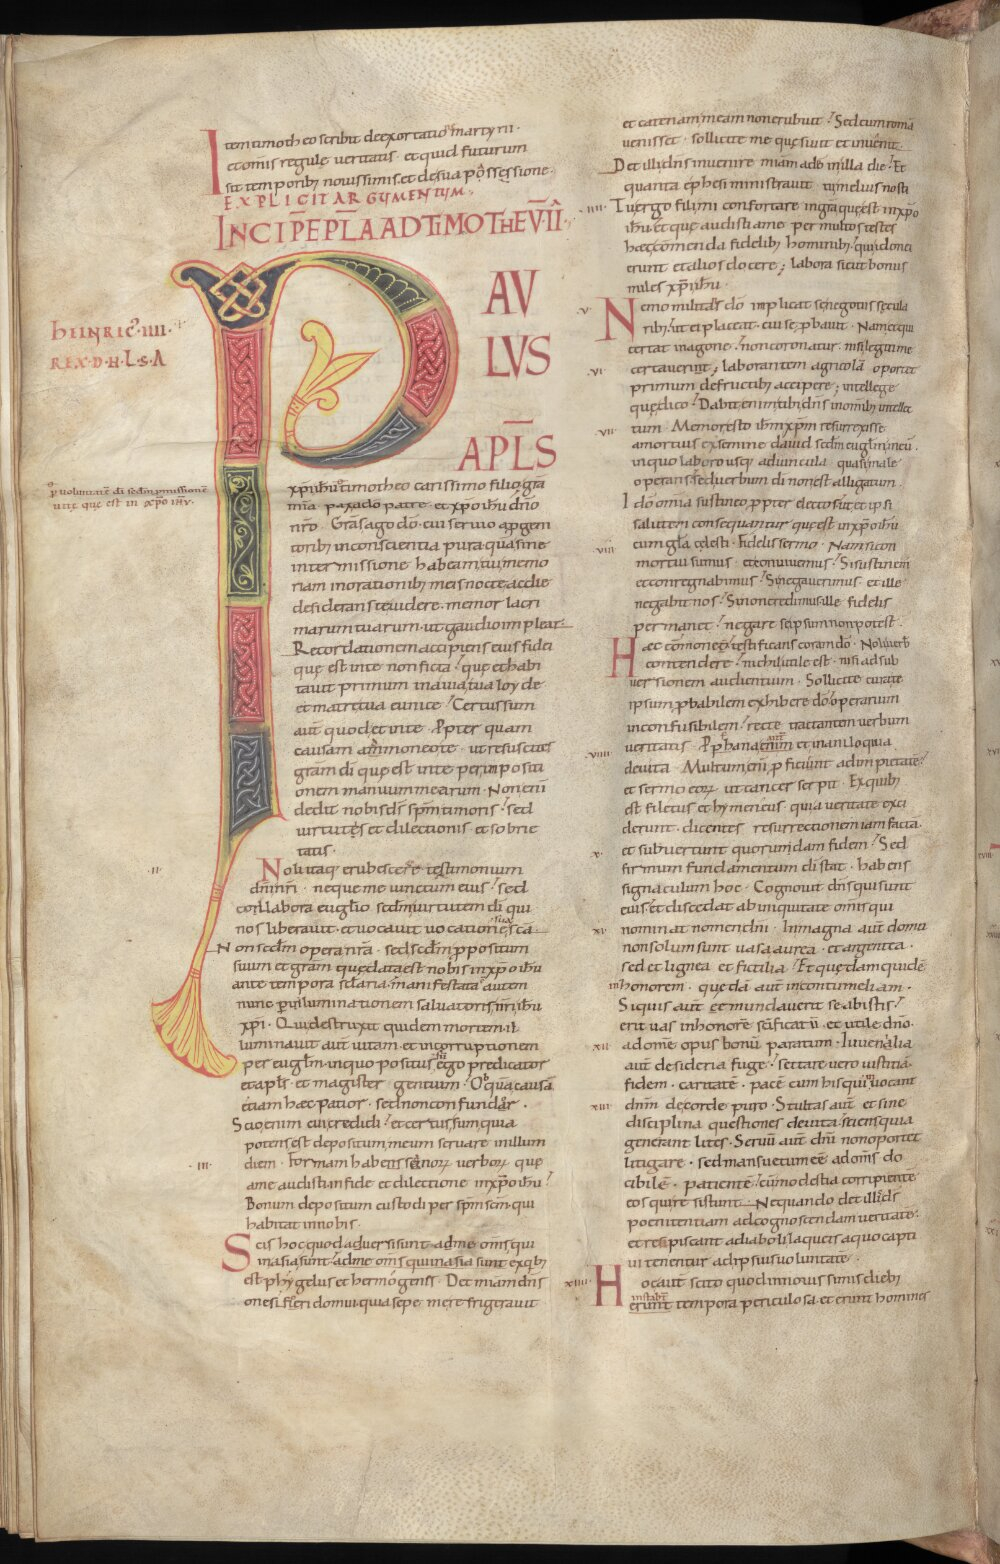 Item timotheo scribit de exortatiōe martyrii ·
et om̄is regulę veritatis · et quid futurum
sit temporib; novissimis. et de sua pássessione ·
EXPLICIT ARGUMENTUM
INCIP̄ EP̄LA AD TIMOTHEV̄ II
PAV
LVS
HEINRIC᷒ · IIII ·
REX · D · H · L · S · A
AP̄LS
xp̄i ih̄u timotheo carissimo filio. grā
p̱ voluntatē dī secdm̄ ꝓmissionē
vitę quę est in xp̄o ih̄v ·
mīa pax a dō patre et xp̄o ih̄u dn̄o
nr̄o · Gr̄as ago dō. cui servio a ꝓgeni
toribꝫ in conscientia pura. quā sine
intermissione habeam tui memo
riam in orationibꝫ meis nocte ac die
desiderans te videre. memor lacri
marum tuarum. ut gaudio implear
Recordationem accipiens eius fidei
quę est in te non ficta · quę et habi
tavit primum in avia tua loyde
et matre tua eunice · Certus sum
aut̄ quod et in te · Ꝓpter quam
causam ammoneo te · ut resuscites
gr̄am dī quę est in te per inpositi
onem manuum mearum · Non enī
dedit nobis dš sp̄m timoris · sed
virtutis et dilectionis et sobrie
tatis ·
· II ·
Noli itaq; erubescere testimonium
dn̄i nr̄i · neque me vinctum eius · sed
collabora euglīo secdm̄ virtutem dī qui
nos liberavit. et vocavit vocatione sua sc̄a
Non secdm̄ opera nr̄a · sed secdm̄ ꝓpositum
suum et gr̄am quę data est nobis in xp̄o ih̄u
ante tempora sc̄laria. manifestata ē autem
nunc per inluminationem salvatoris nr̄i ih̄u
xp̄i · Qui destruxit quidem mortem · il
luminavit aut̄ vitam. et incorruptionem
per euglīm. in quo positus sū ego predicator
et apl̄s · et magister gentium · Ob quā causā
etiam hæc patior · sed non confundor ·
Scio enim cui credidi · et certus sum. quia
potens est depositum meum servare in illum
· III ·
diem · Formam habens sanoꝝ verboꝝ quę
a me audisti in fide et dilectione in xp̄o ih̄u ·
Bonum depositum custodi per sp̄m sc̄m. qui
habitat in nobis ·
Scis hoc quod aversi sunt a me om̄s qui
in asia sunt · a dme om̄s qui in asia sunt ex qb;
est phygelus et hermogenis · Det miām dn̄s
onesifferi domui. quia sepe me refrigeravit
et catenam meam non erubuit · Sed cum romā
venisset · sollicite me quęsivit et invenit
Det illi dn̄s invenire miām a dō in illa die · Et
quanta ephesi ministravit · tu melius nosti
· IIII ·
Tu ergo fili mi confortare in gr̄a quę est in xp̄o
ih̄u et quę audisti a me per multos testes
hæc comenda fidelibꝫ hominibꝫ. qui idonei
erunt et alios docere ; labora sicut bonus
miles xp̄i ih̄u ·
· V ·
Nemo militans dō implicat se negotiis secula
ribꝫ. ut ei placeat. cui se ꝓbavit · Nam et qui
certat in agone · non coronatur. nisi legitime
· VI ·
certaverint ; laborantem agricolā oportet
primum de fructibꝫ accipere ; intellege
quę dico · Dabit enim tibi dn̄s in omībꝫ intellec
· VII ·
tum · Memor esto ih̄m xp̄m resurrexisse
a mortuis ex semine david secdm̄ euglīm meū
in quo laboro usq; ad vincula quasi male
operans. sed verbum dī non est alligatum ·
Idō omnia sustineo ꝓpter electos ut et ipsi
salutem consequantur quę est in xp̄o ih̄u
· VIII ·
cum glā cęlesti · Fidelis sermo · Nam si con
mortui sumus · et convivemus · Si sustinem᷒
et conregnabimus · Si negaverimus · et ille
negabit nos · Si non credimus. ille fidelis
permanet · negare se ipsum non potest ·
Hæc commoneo · testificans coram dō · Noli verb̄
contendere · nichil utile est · nisi ad sub
versionem audientium · Sollicite cura te
ipsum ꝓbabilem exhibere dō operarium
inconfusibilem · recte tractantem verbum
· VIIII ·
veritatis · Ꝓphana enim aut̄ et inaniloquia
devita · Multum enī ꝓficiunt ad impietatē ·
et sermo eoꝝ ut cancer serpit · Ex quibꝫ
est filetus et hymeneus quia veritate exci
derunt · dicentes resurrectionem iam factā
· X ·
et subvertunt quorumdam fidem · Sed
firmum fundamentum dī stat · habens
signaculum hoc · Cognovit dn̄s qui sunt
eius. et discedat ab iniquitate om̄is qui
· XI ·
nominat nomen dn̄i · In magna aut̄ domu
non solum sunt vasa aurea · et argentea ·
sed et lignea et fictilia · Et quędam quidē
in honorem · quędā aut̄ in contumeliam ·
Si quis aut̄ emundaverit se ab istis ·
erit vas in honorē sc̄ificatū et utile dn̄o ·
· XII ·
ad om̄e opus bonū paratum · Iuvenalia
aut̄ desideria fuge · sectare vero iustitiā
fidem · caritatē · pacē cum his qui invocant
· XIII ·
dn̄m de corde puro · Stultas aut̄ et sine
disciplina questiones devita. sciens quia
generant lites · Servū aut̄ dn̄i non oportet
litigare · sed mansuetum eē ad om̄s do
cibilē · patientē · cū modestia corripientē
eos qui resistunt · Nequando det illis dš
poenitentiam ad cognoscendam veritatē ·
et resipiscant a diaboli laqueis a quo capti
vi tenentur ad ipsius voluntatē ·
· XIIII ·
Hoc aut̄ scito quod in novissimis diebꝫ
instabt̄
erunt tempora periculosa. et erunt homines